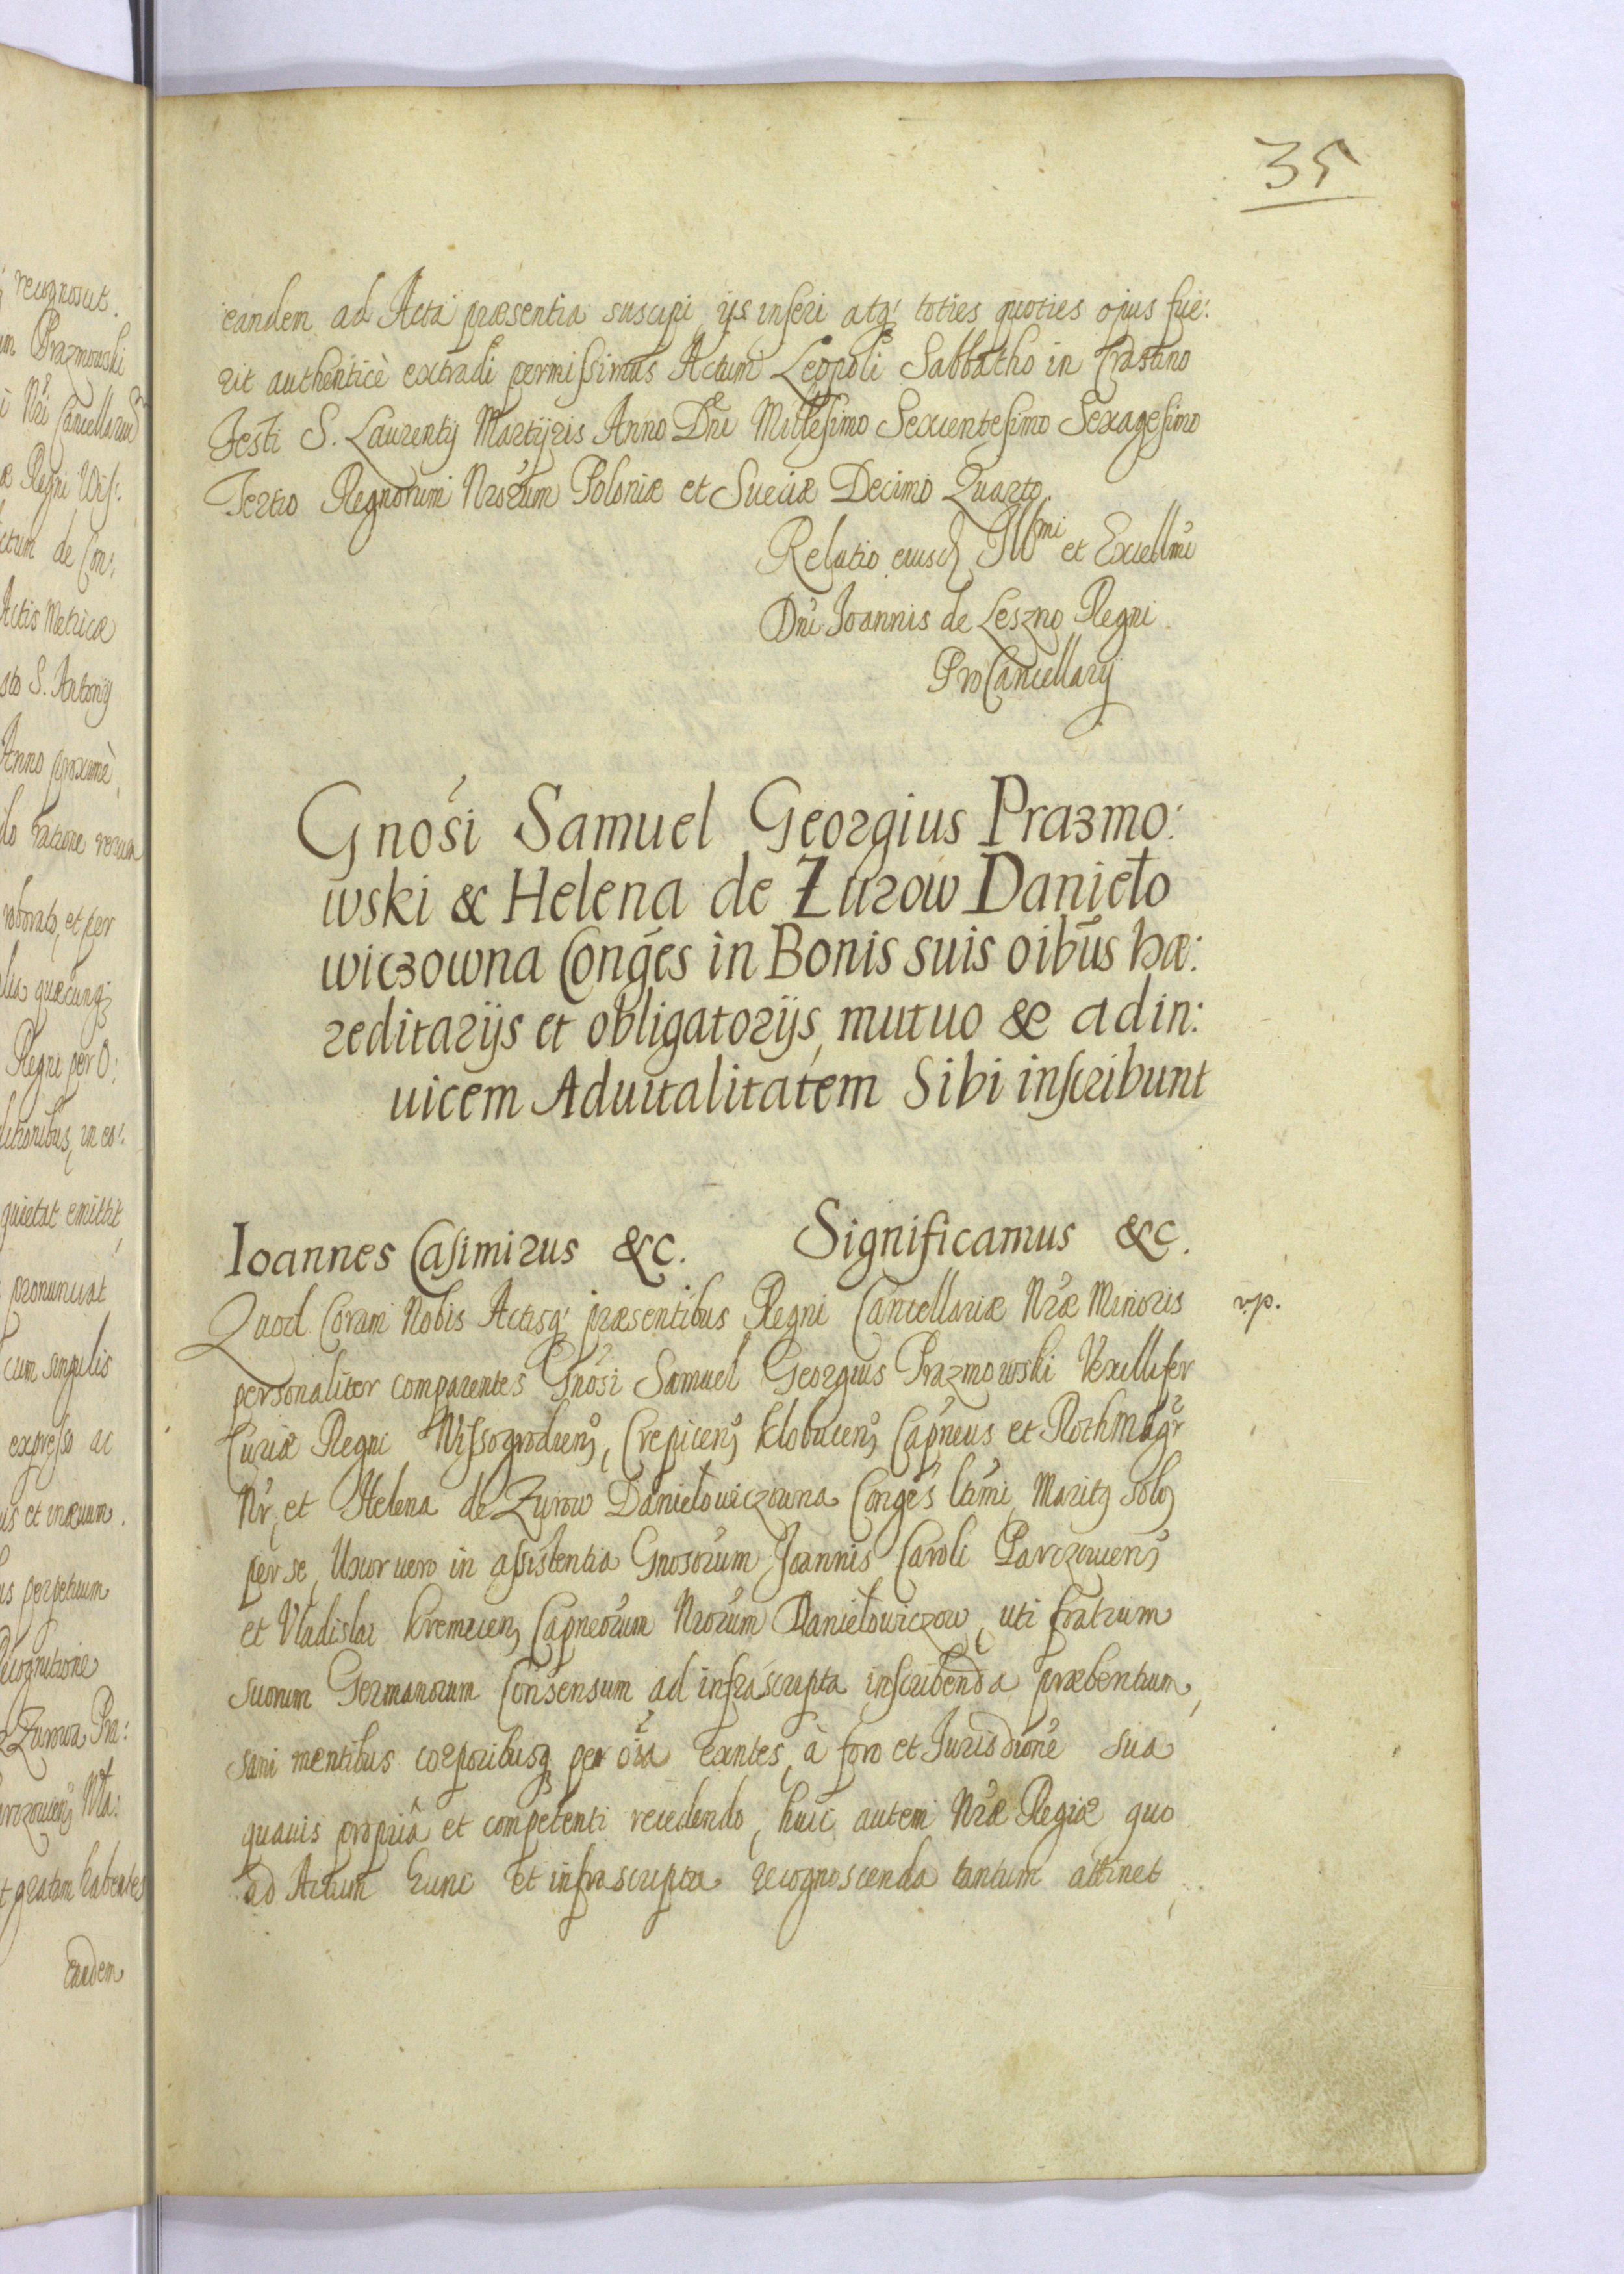 35
eandem ad Acta præsentia suscipi, ijs inseri atq; toties quoties opus fue:
rit authenticè extradi permissimus Actum Leopoli Sabbatho in Crastino
Festi S. Laurentij Martyris Anno Dni Millesimo Sexcentesimo Sexagesimo
Tertio Regnorum Nrorum Poloniæ et Sueciæ Decimo Quarto
Relatio eiusd Illmi et Excellmi
Dni Joannis de Leszno Regni
ProCancellarij
Gnosi Samuel Georgius Prazmo:
wski & Helena de Zurow Danieło
wiczowna Conges in Bonis suis oibus hæ:
reditarijs et obligatorijs, mutuo & ad in:
uicem Aduitalitatem Sibi inscribunt
Ioannes Casimirus &c. Significamus &c.
Quod Coram Nobis Actisq; præsentibus Regni Cancellariæ Nræ Minoris
v.p.
personaliter comparentes Gnosi Samuel Georgius Prazmowski Vexillifer
Curiæ Regni Wissogrodien, Crepicen, Klobucen, Capneus et Rothmagr
Nr, et Helena de Zurow Daniełowiczowna Conges ltimi, Marits solo
per se, Uxor uero in assistentia Gnosorum Joannis Caroli Parczouien
et Vladislai Kremecen Capneorum Nrorum Daniełowiczow, uti fratrum
suorum Germanorum Consensum ad infrascripta inscribenda præbentium,
sani mentibus corporibusq per oia exntes, à foro et Jurisdione sua
quauis propriâ et competenti recedendo, huic autem Nræ Regiæ quo
ad Actum hunc et infrascripta recognoscenda tantum attinet,
reugnosut.
Prazmowski
Nri Cancellariæ
Regni Wis:
de Con:
Actis Metricæ
S. Antonij
Anno proxime
ratione
roborato, et per
quæcunq;
Regni per O:
in eo:
quietat emittit,
pronunciat
cum singulis
expresso ac
perpetuum
Recognitione
Zurowa Pra:
gratam habentes
Eandem